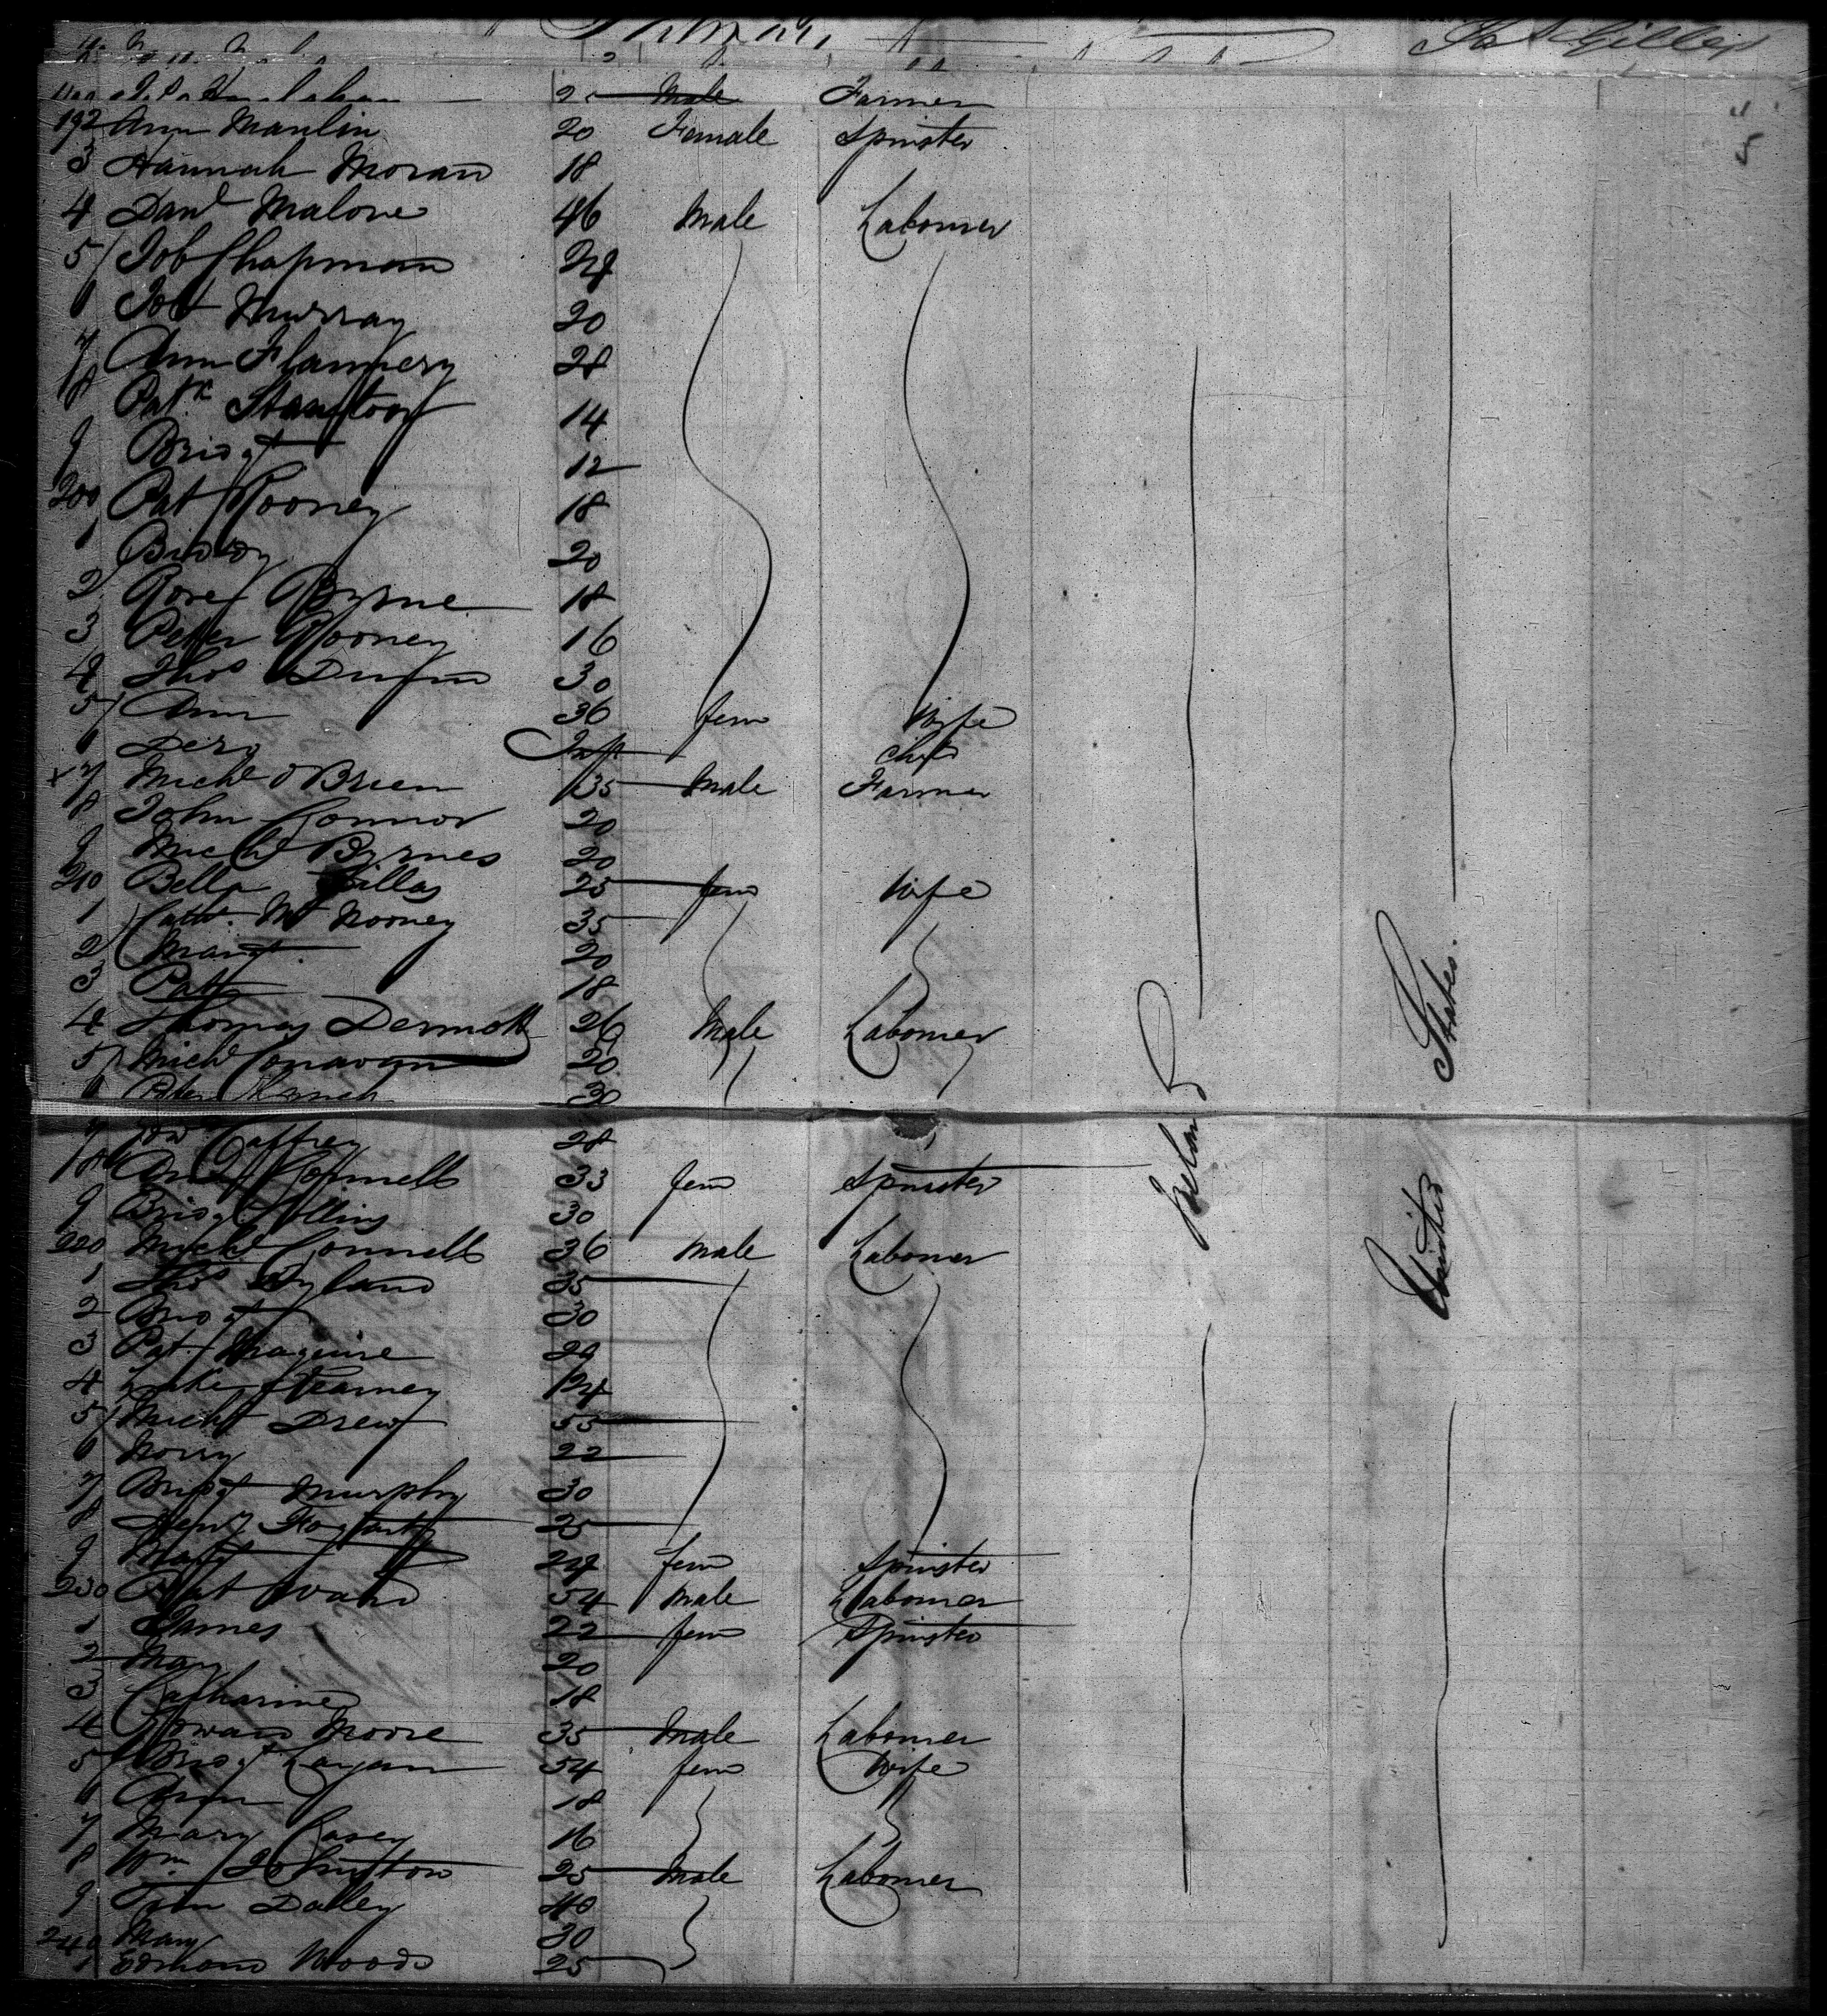 25 Male Farmer
192 Ann Manlin 20 Female Spinster
3 Hannah Moran 18
4 Danl Malone 46 Male Labourer
5 Job Chapman 24
6 Murray 20
7 Ann Flannery 28
8 Patk Staunton 14
9 Bridgt 12
200 Pat Rooney 18
1 Biddy 20
2 Rose Byrne 18
3 Peter Rooney 16
4 Thos 30
5 Ann 36 fem Wife
6 Inft Chd
7 Michl O Brien 35 Male Farmer
8 John Connor 20
9 Michl Byrnes 20
210 Bella 25 fem Wife
1 Cath. 35
2 Margt 20
3 Patt 18
4 Thomas Dermott 26 Male Labourer
5 Michl Conavan 20
6 Peter 30
7 Caffrey 28
8 Connell 33 fem Spinster
9 Bridgt Collins 30
220 Michl Connell 36 Male Labourer
1 Thos Hyland 35
2 Bridgt 30
3 Pat Maguire 29
4 Luke Kearney 24
5 Michl Drew 55
6 Norry 22
7 Bridgt Murphy 30
8 Fogarty 25
9 24 fem Spinster
230 Pat 54 Male Labourer
1 James 22 fem Spinster
2 Mary 20
3 Catharine 18
4 Edward Moore 35 Male Labourer
5 Bridgt 54 fem Wife
6 Ann 18
7 Mary Casey 16
8 Wm Johnston 25 Male Labourer
9 Dalley 40
240 Mary 30
1 Edmond Woods 25
Ireland
United States.